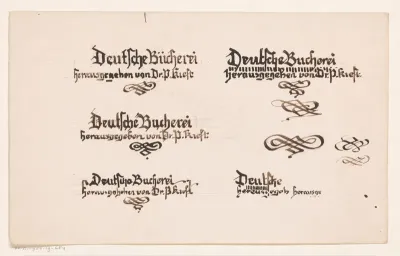 Deutsche Bücherei
herausgegeben von Dr. P. Kiefs.
Deutsche Bucherei
herausgegeben von Dr. P. Kiefs.
Deutsche Bucherei
herausgegeben von Dr. P.
Deutsche Bucherei
herausgegeben von Dr. P.
Deutsche
herausge